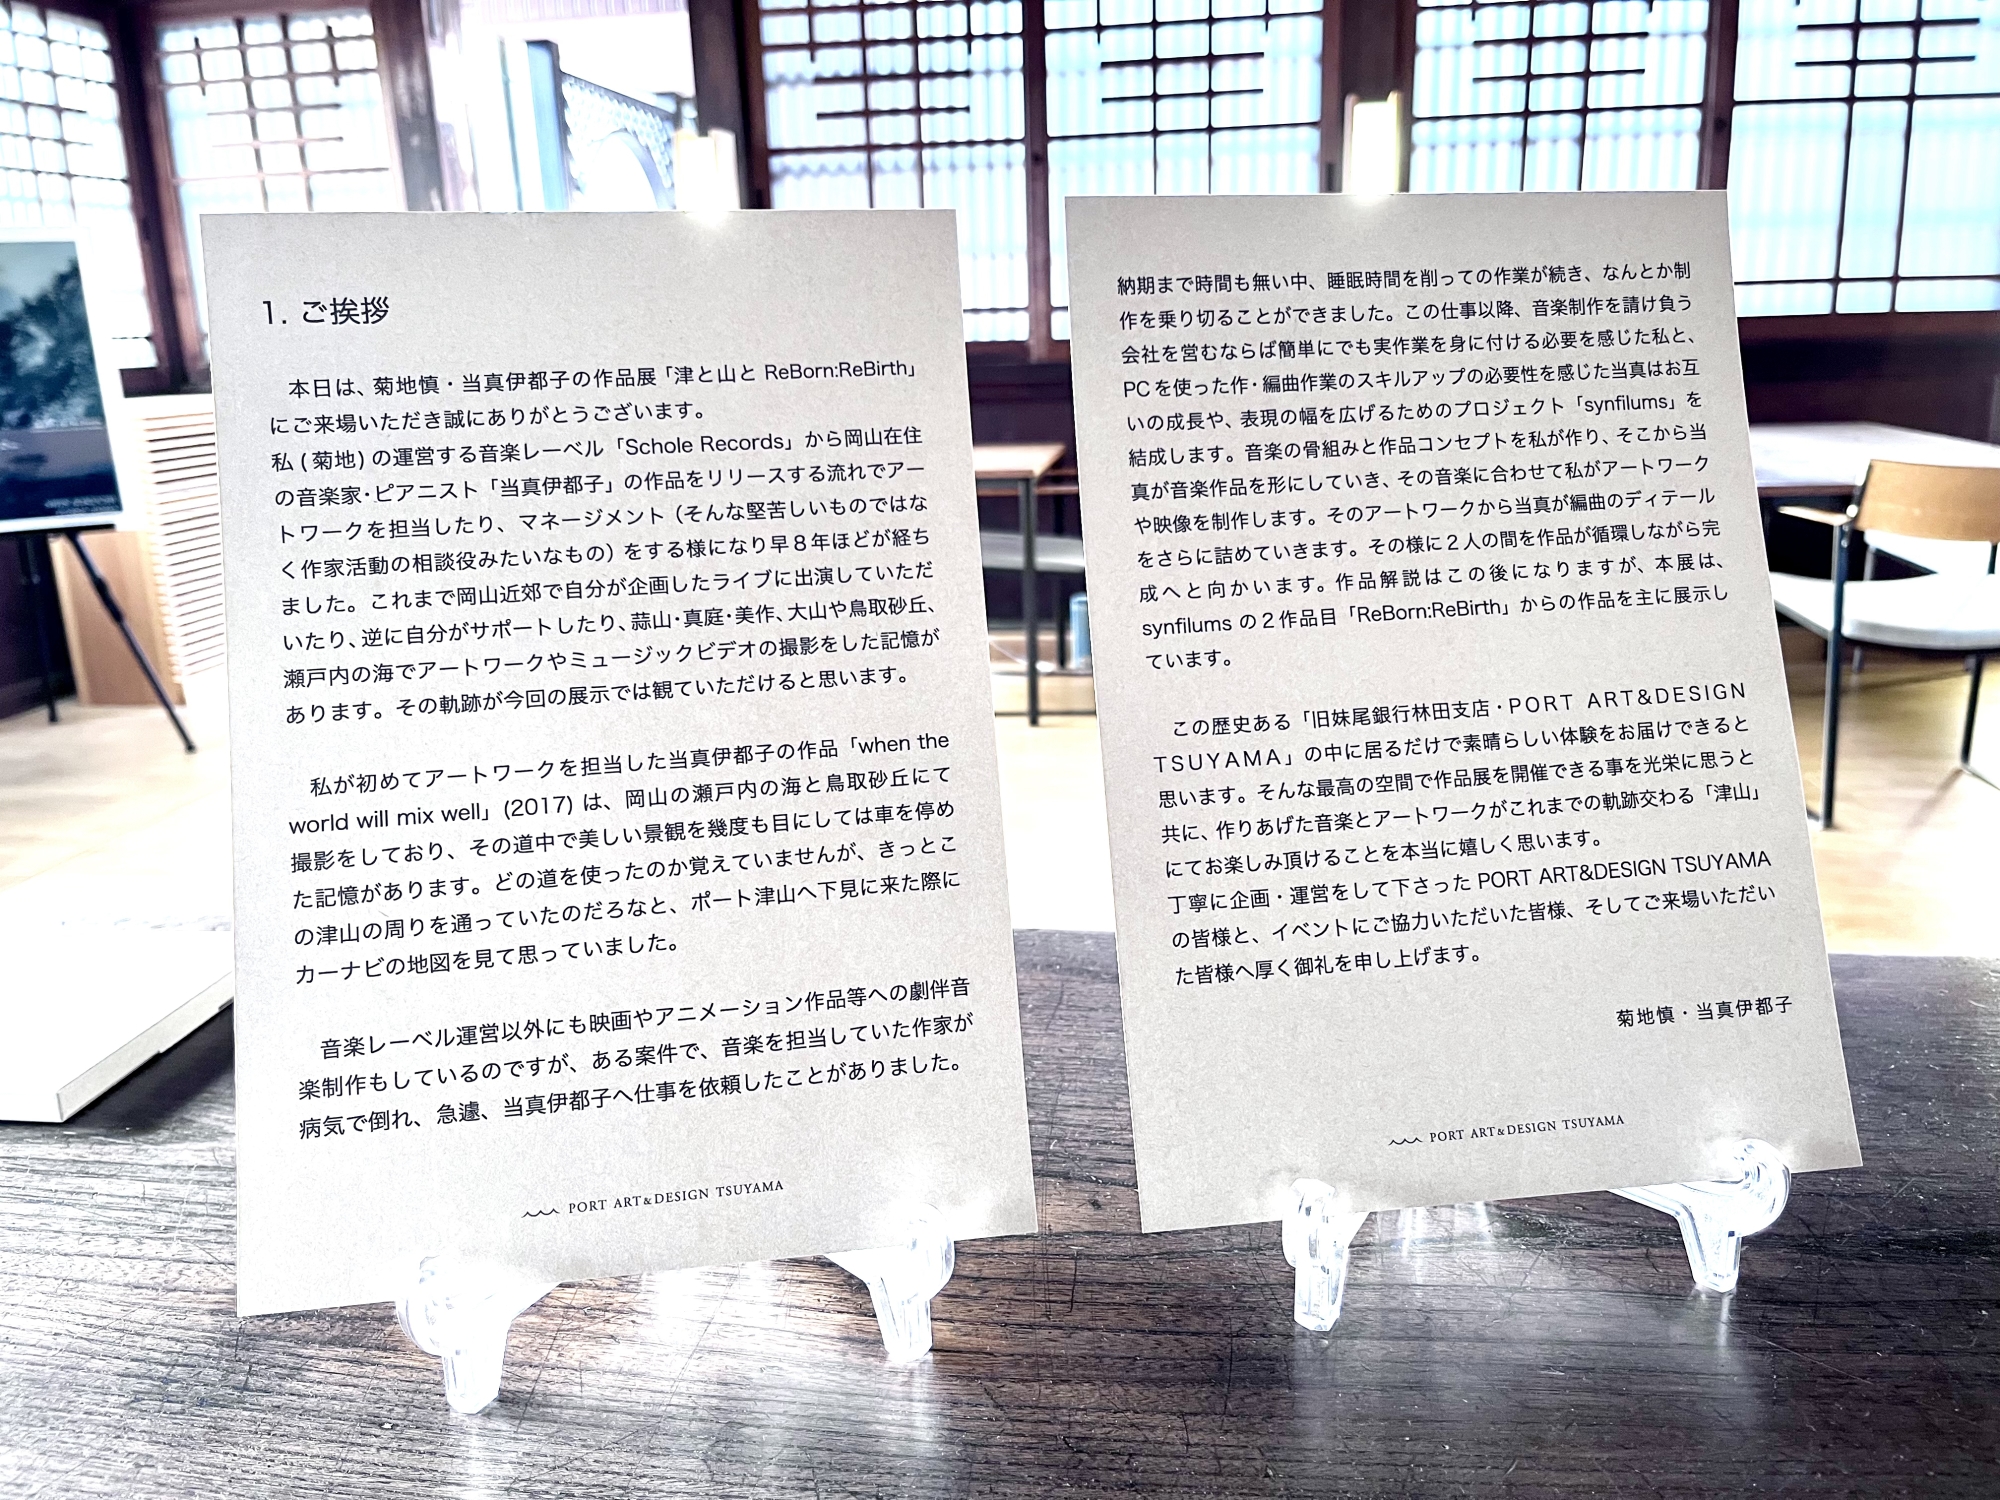 1. ご挨拶
本日は、菊地慎・当真伊都子の作品展「津と山と ReBorn:ReBirth」
にご来場いただき誠にありがとうございます。
私 ( 菊地 ) の運営する音楽レーベル「Schole Records」から岡山在住
の音楽家・ピアニスト「当真伊都子」の作品をリリースする流れでアー
トワークを担当したり、マネージメント（そんな堅苦しいものではな
く作家活動の相談役みたいなもの）をする様になり早８年ほどが経ち
ました。これまで岡山近郊で自分が企画したライブに出演していただ
いたり、逆に自分がサポートしたり、蒜山・真庭・美作、大山や鳥取砂丘、
瀬戸内の海でアートワークやミュージックビデオの撮影をした記憶が
あります。その軌跡が今回の展示では観ていただけると思います。
私が初めてアートワークを担当した当真伊都子の作品「when the
world will mix well」(2017) は、岡山の瀬戸内の海と鳥取砂丘にて
撮影をしており、その道中で美しい景観を幾度も目にしては車を停め
た記憶があります。どの道を使ったのか覚えていませんが、きっとこ
の津山の周りを通っていたのだろなと、ポート津山へ下見に来た際に
カーナビの地図を見て思っていました。
音楽レーベル運営以外にも映画やアニメーション作品等への劇伴音
楽制作もしているのですが、ある案件で、音楽を担当していた作家が
病気で倒れ、急遽、当真伊都子へ仕事を依頼したことがありました。
PORT ART&DESIGN TSUYAMA
納期まで時間も無い中、睡眠時間を削っての作業が続き、なんとか制
作を乗り切ることができました。この仕事以降、音楽制作を請け負う
会社を営むならば簡単にでも実作業を身に付ける必要を感じた私と、
PC を使った作・編曲作業のスキルアップの必要性を感じた当真はお互
いの成長や、表現の幅を広げるためのプロジェクト「synfilums」を
結成します。音楽の骨組みと作品コンセプトを私が作り、そこから当
真が音楽作品を形にしていき、その音楽に合わせて私がアートワーク
や映像を制作します。そのアートワークから当真が編曲のディテール
をさらに詰めていきます。その様に２人の間を作品が循環しながら完
成へと向かいます。作品解説はこの後になりますが、本展は、
synfilums の２作品目「ReBorn:ReBirth」からの作品を主に展示し
ています。
この歴史ある「旧妹尾銀行林田支店・PORT ART&DESIGN
TSUYAMA」の中に居るだけで素晴らしい体験をお届けできると
思います。そんな最高の空間で作品展を開催できる事を光栄に思うと
共に、作りあげた音楽とアートワークがこれまでの軌跡交わる「津山」
にてお楽しみ頂けることを本当に嬉しく思います。
丁寧に企画・運営をして下さった PORT ART&DESIGN TSUYAMA
の皆様と、イベントにご協力いただいた皆様、そしてご来場いただい
た皆様へ厚く御礼を申し上げます。
菊地慎・当真伊都子
PORT ART&DESIGN TSUYAMA